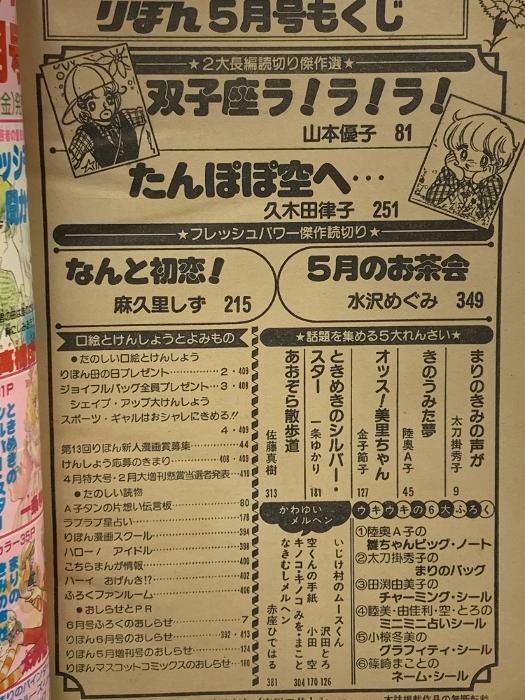 りぼん5月号もくじ
★2大長編読切り傑作選★
双子座ラ！ラ！ラ！
山本優子 81
たんぽぽ空へ…
久木田律子 251
★フレッシュパワー傑作読切り★
なんと初恋！
麻久里しず 215
5月のお茶会
水沢めぐみ 349
口絵とけんしょうとよみもの
●たのしい口絵とけんしょう
りぼん母の日プレゼント…2・409
ジョイフルバッグ全員プレゼント…3・408
シェイプ・アップ大けんしょう
スポーツ・ギャルはおシャレにきめる!!
4・409
第13回りぼん新人漫画賞募集…44
けんしょう応募のきまり…408・409
4月特大号・2月大増刊懸賞当選者発表…410
●たのしい読物
A子タンの片想い伝言板…80
ラブラブ星占い…178
りぼん漫画スクール…394
ハロー！アイドル…398
こちらまんが情報…400
ハーイ おげんき!?…402
ふろくファンルーム…406
●おしらせとPR
6月号ふろくのおしらせ…7
りぼん6月号のおしらせ…392・413
りぼん5月増刊号のおしらせ…124
りぼんマスコットコミックスのおしらせ…180
★話題を集める5大れんさい★
まりのきみの声が
太刀掛秀子 9
きのうみた夢
陸奥A子 45
オッス！美里ちゃん
金子節子 127
ときめきのシルバー・スター
一条ゆかり 181
あおぞら散歩道
佐藤真樹 313
かわゆいメルヘン
いじけ村のムースくん
沢田とろ 126
空くんの手紙
小田空 170
キノコ・キノコ
みを・まこと 304
なきむしメルヘン
赤座ひではる 381
ウキウキの6大ふろく
①陸奥A子の
雛ちゃんビッグ・ノート
②太刀掛秀子の
まりのバッグ
③田渕由美子の
チャーミング・シール
④睦美・由佳利・空・とろの
ミニミニ占いシール
⑤小椋冬美の
グラフィティ・シール
⑥篠崎まことの
ネーム・シール
本誌掲載作品の無断転載